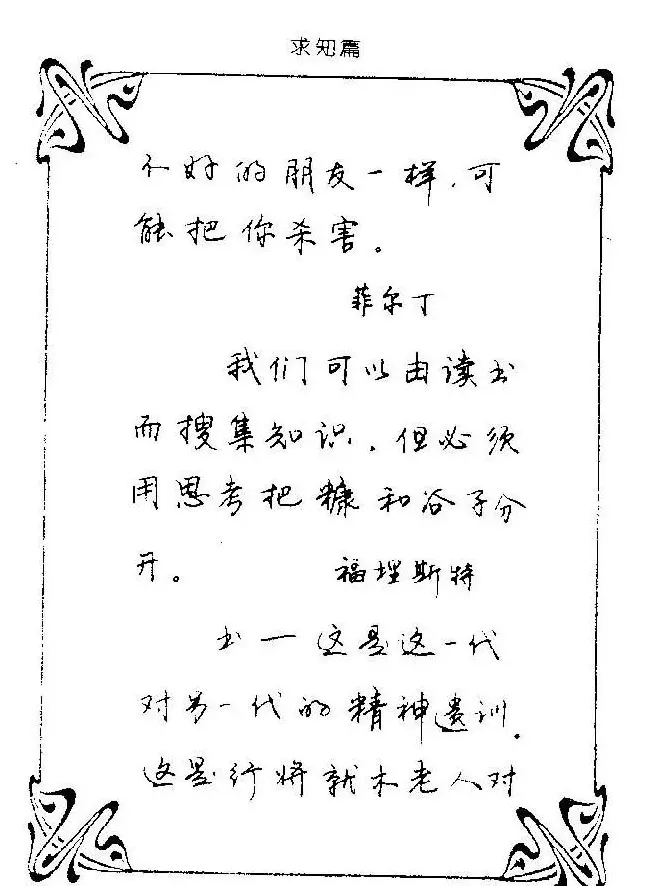 求知篇
不好的朋友一样,可
能把你杀害。
菲尔丁
我们可以由读书
而搜集知识,但必须
用思考把糠和谷子分
开。 福埋斯特
书一这是这一代
对另一代的精神遗训,
这是行将就木老人对